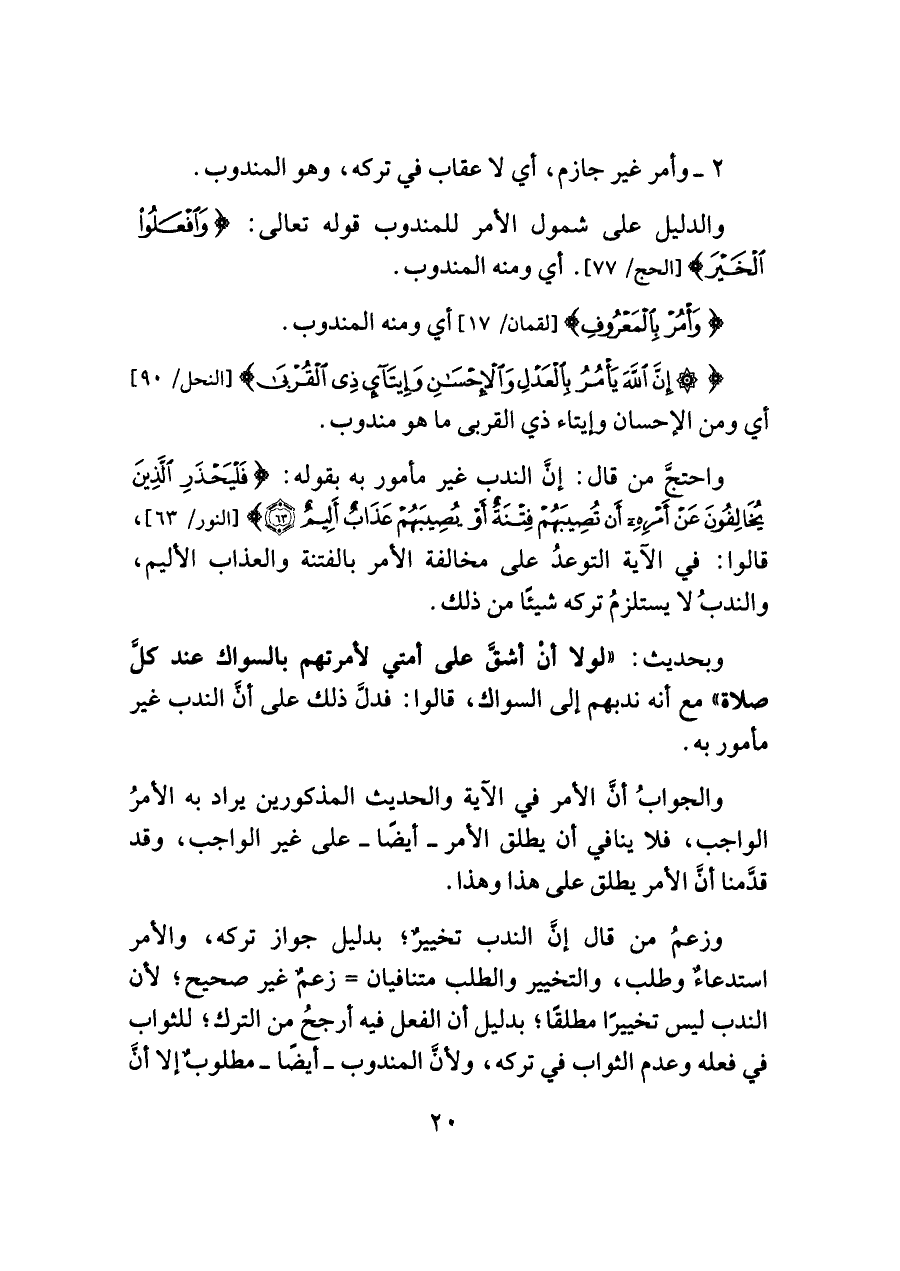 ٢ ـ وأمر غير جازم، أي لا عقاب في تركه، وهو المندوب.
والدليل على شمول الأمر للمندوب قوله تعالى: ﴿ وَٱفْعَلُوا۟
ٱلْخَيْرَ﴾ [الحج/ ٧٧]. أي ومنه المندوب.
﴿ وَأْمُرْ بِٱلْمَعْرُوفِ﴾ [لقمان/ ١٧] أي ومنه المندوب.
﴿ ۞ إِنَّ ٱللَّهَ يَأْمُرُ بِٱلْعَدْلِ وَٱلْإِحْسَٰنِ وَإِيتَآئِ ذِى ٱلْقُرْبَىٰ﴾ [النحل/ ٩٠]
أي ومن الإحسان وإيتاء ذي القربى ما هو مندوب.
واحتجَّ من قال: إنَّ الندب غير مأمور به بقوله: ﴿ فَلْيَحْذَرِ ٱلَّذِينَ
يُخَالِفُونَ عَنْ أَمْرِهِۦٓ أَن تُصِيبَهُمْ فِتْنَةٌ أَوْ يُصِيبَهُمْ عَذَابٌ أَلِيمٌ ٦٣﴾ [النور/ ٦٣]،
قالوا: في الآية التوعدُ على مخالفة الأمر بالفتنة والعذاب الأليم،
والندبُ لا يستلزمُ تركه شيئًا من ذلك.
وبحديث: «لولا أنْ أشقَّ على أمتي لأمرتهم بالسواك عند كلَّ
صلاة» مع أنه ندبهم إلى السواك، قالوا: فدلَّ ذلك على أنَّ الندب غير
مأمور به.
والجوابُ أنَّ الأمر في الآية والحديث المذكورين يراد به الأمرُ
الواجب، فلا ينافي أن يطلق الأمر ـ أيضًا ـ على غير الواجب، وقد
قدَّمنا أنَّ الأمر يطلق على هذا وهذا.
وزعمُ من قال إنَّ الندب تخييرٌ؛ بدليل جواز تركه، والأمر
استدعاءٌ وطلب، والتخيير والطلب متنافيان = زعمٌ غير صحيح؛ لأن
الندب ليس تخييرًا مطلقًا؛ بدليل أن الفعل فيه أرجحُ من الترك؛ للثواب
في فعله وعدم الثواب في تركه، ولأنَّ المندوب ـ أيضًا ـ مطلوبٌ إلا أنَّ
٢٠